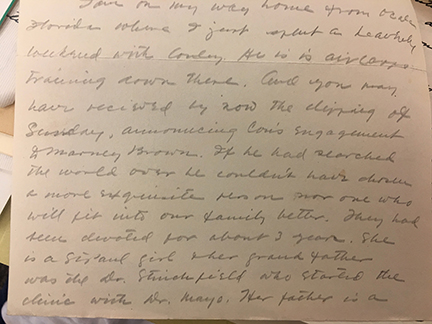 I am on my way home from
Florida where I just spent a heavenly
weekend with Conley. He is in air corps
training down there. And you may
have recieved by now the clipping of
Sunday, announcing Con's engagement
to Marney Brown. If he had searched
the world over he couldn't have chosen
a more exquisite person nor one who
will fit into our family better. They had
been devoted for about 3 years. She
is a St Paul girl & her grand father
was the Dr. Stinchfield who started the
clinic with Dr. Mayo. Her father is a